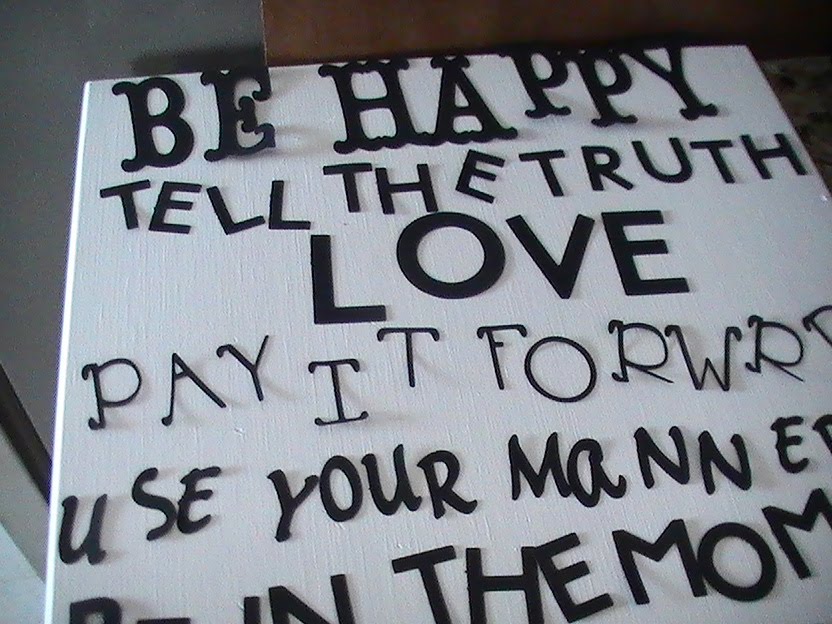 BE HAPPY
TELL THE TRUTH
LOVE
PAY IT FORWRD
USE YOUR MaNNER
BE IN THE MOM